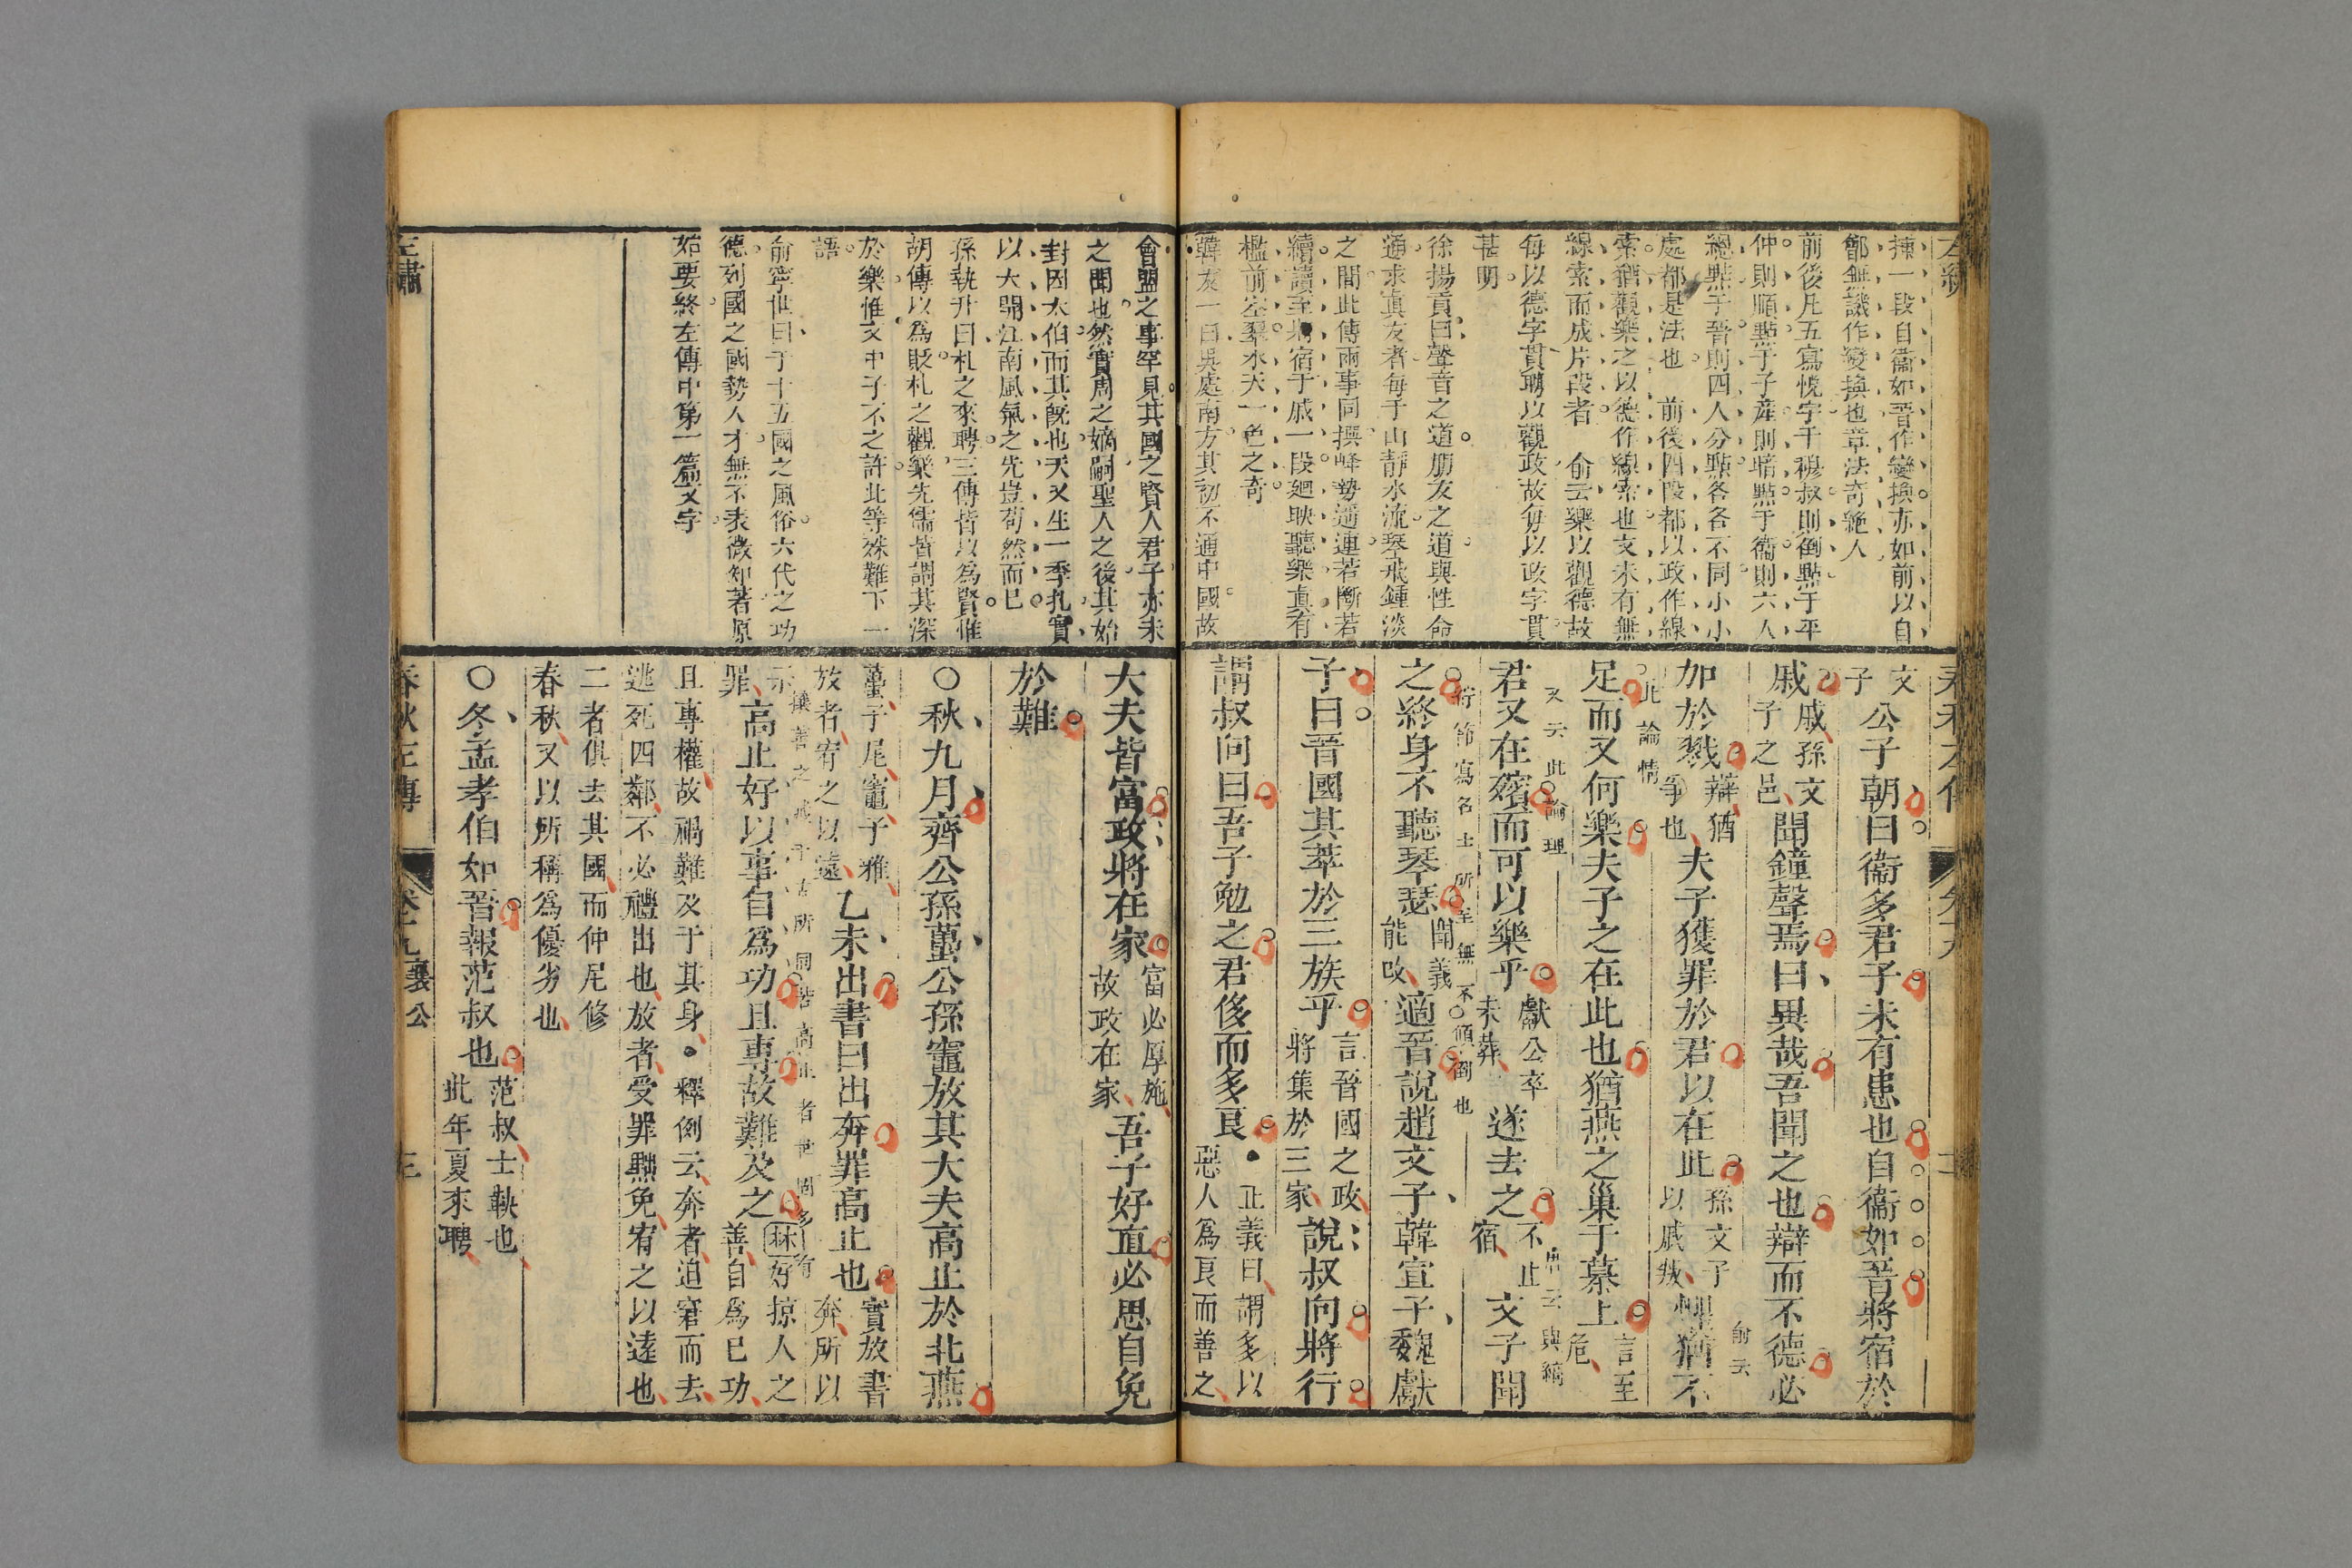 揀一段自衞如晋作變換亦如前以自
鄶無譏作變換也章法奇絶人
前後凡五寫悅字于穆叔則倒點于平
仲則順點于子產則暗點于衞則六人
總點于晉則四人分點各各不同小小
處都是法也 前後四段都以政作線
索猶觀樂之以德作線索也文未有無
線索而成片段者 俞云樂以觀德故
每以德字貫聘以觀政故每以政字貫
甚明
徐揚貢曰聲音之道朋友之道與性命
通求眞友者每于山靜水流琴戒鍾淡
之間此傳兩事同撰峰勢遥連若斷若
續讀至將宿于戚一段廻映聽樂眞有
檻前空翠水天一色之奇
韓友一曰吳處南方其初不通中國故
文
子公子朝曰衞多君子未有患也自衞如晉將宿於
戚戚孫文子之邑聞鐘聲焉曰異哉吾聞之也辯而不德必
加於戮辯猶爭也夫子獲罪於君以在此孫文子以戚叛懼猶不
俞云
此論情
足而又何樂夫子之在此也猶燕之巢于幕上言至危
又云此論理
君又在殯而可以樂乎獻公卒未葬遂去之不止宿文子聞
之終身不聽琴瑟聞義能改適晉說趙文子韓宣子魏獻
子曰晉國其萃於三族乎言晉國之政將集於三家說叔向將行
謂叔向曰吾子勉之君侈而多良正義曰謂多以惡人爲良而善之
會盟之事罕見其國之賢人君子亦未
之聞也然實周之嫡嗣聖人之後其始
封因太伯而其旣也天又生一季札實
以大開江南風氣之先豈苟然而已
孫執升曰札之來聘三傳皆以為賢惟
胡傳以為貶札之觀樂先儒皆謂其深
於樂惟文中子不之許此等殊難下一
語
俞寧世曰于十五國之風俗六代之功
德列國之國勢人才無不表微知著原
始要終左傳中第一篇文字
大夫皆富政將在家富必厚施故政在家吾子好直必思自免
於難
○秋九月齊公孫蠆公孫竈放其大夫高止於北燕
蠆子尾竈子雅放者宥之以遠乙未出書曰出奔罪高止也實放書奔所以
示罪高止好以事自爲功且專故難及之林好掠人之善自爲已功
且專權故禍難及于其身釋例云奔者迫窘而去
逃死四鄰不必禮出也放者受罪黜免宥之以遠也
二者俱去其國而仲尼修
春秋又以所稱爲優劣也
○冬孟孝伯如晉報范叔也范叔士鞅也此年夏來聘
左繡
春秋左傳
卷十九襄公